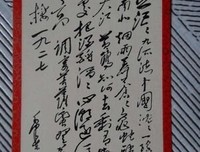 九派流中国沉沉一
南北烟雨莽苍苍龟蛇
大江黄鹤知何去剩有
处把酒酹滔滔心潮逐
高调寄菩萨蛮登黄鹤
楼一九二七